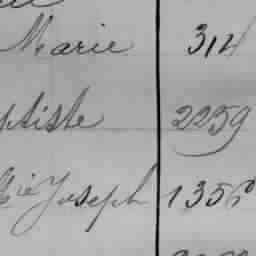 Marie 314
ptiste 2259
Joseph 1356